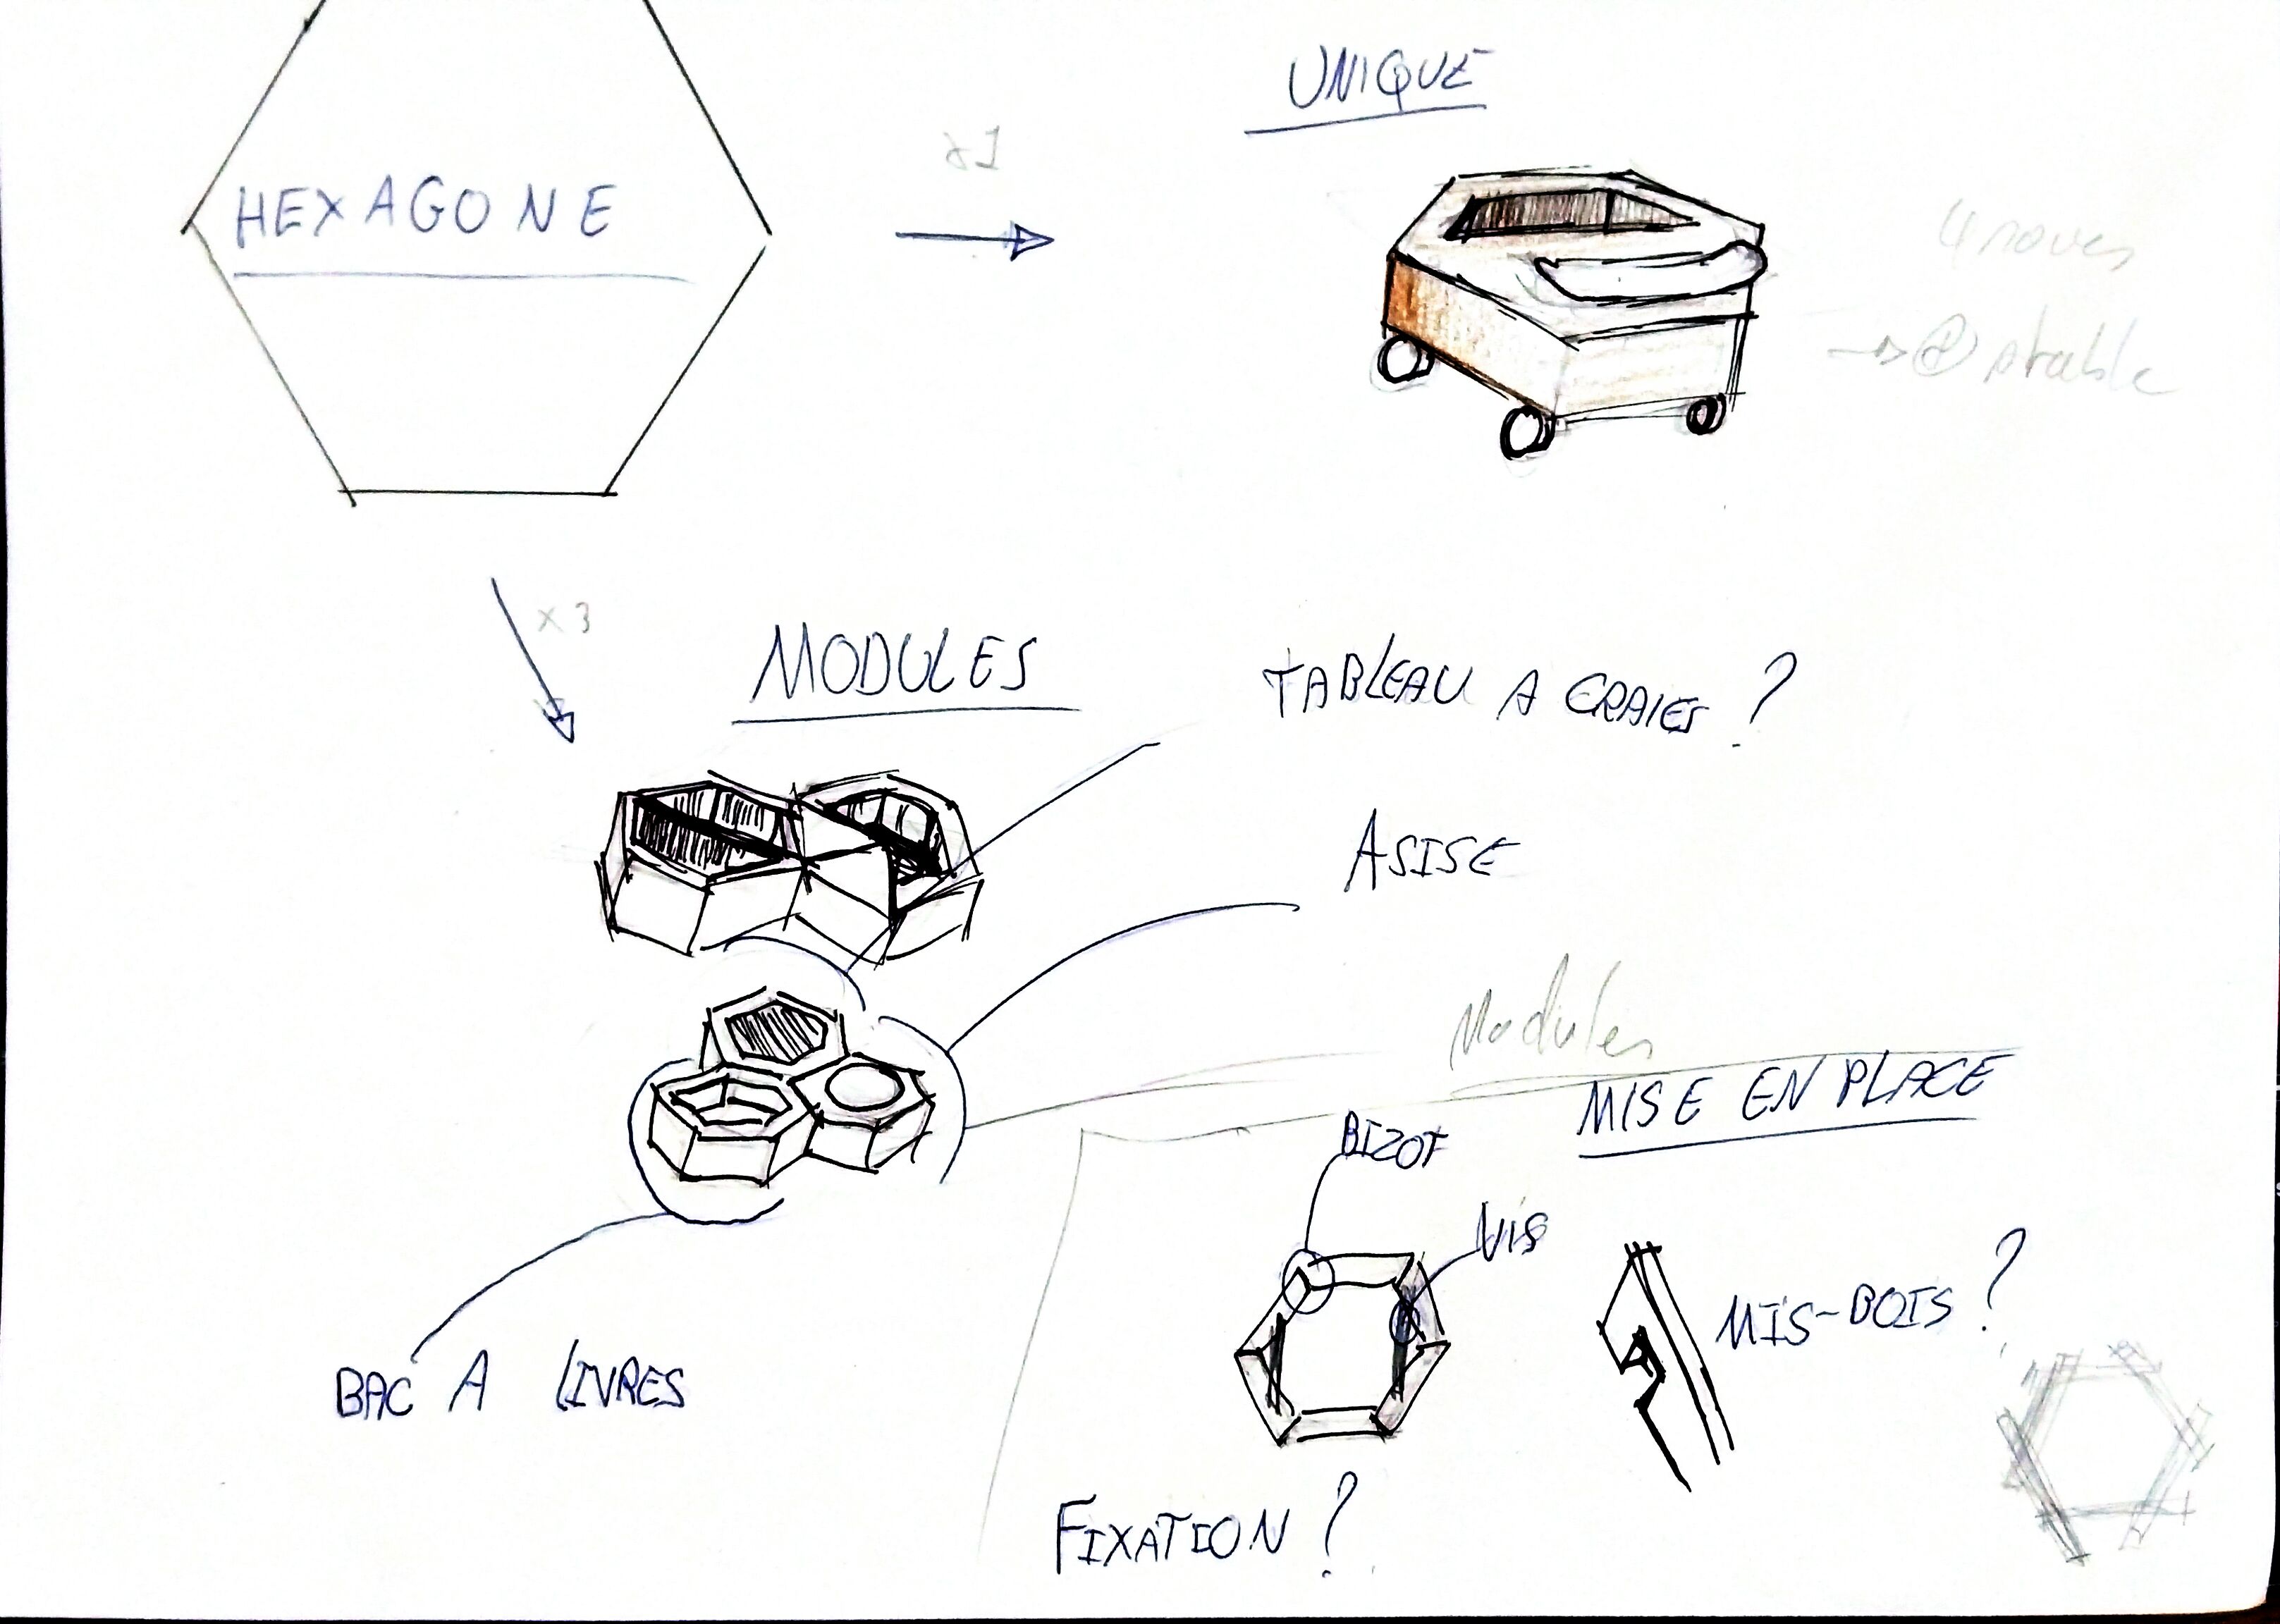 UNIQUE
x1
HEXAGONE
4 roues
→ ⊕ stable
x3
MODULES
TABLEAU A CRAIES ?
ASISE
Modules
MISE EN PLACE
BIZOT
VIS
MIS-BOIS ?
BAC A LIVRES
FIXATION ?